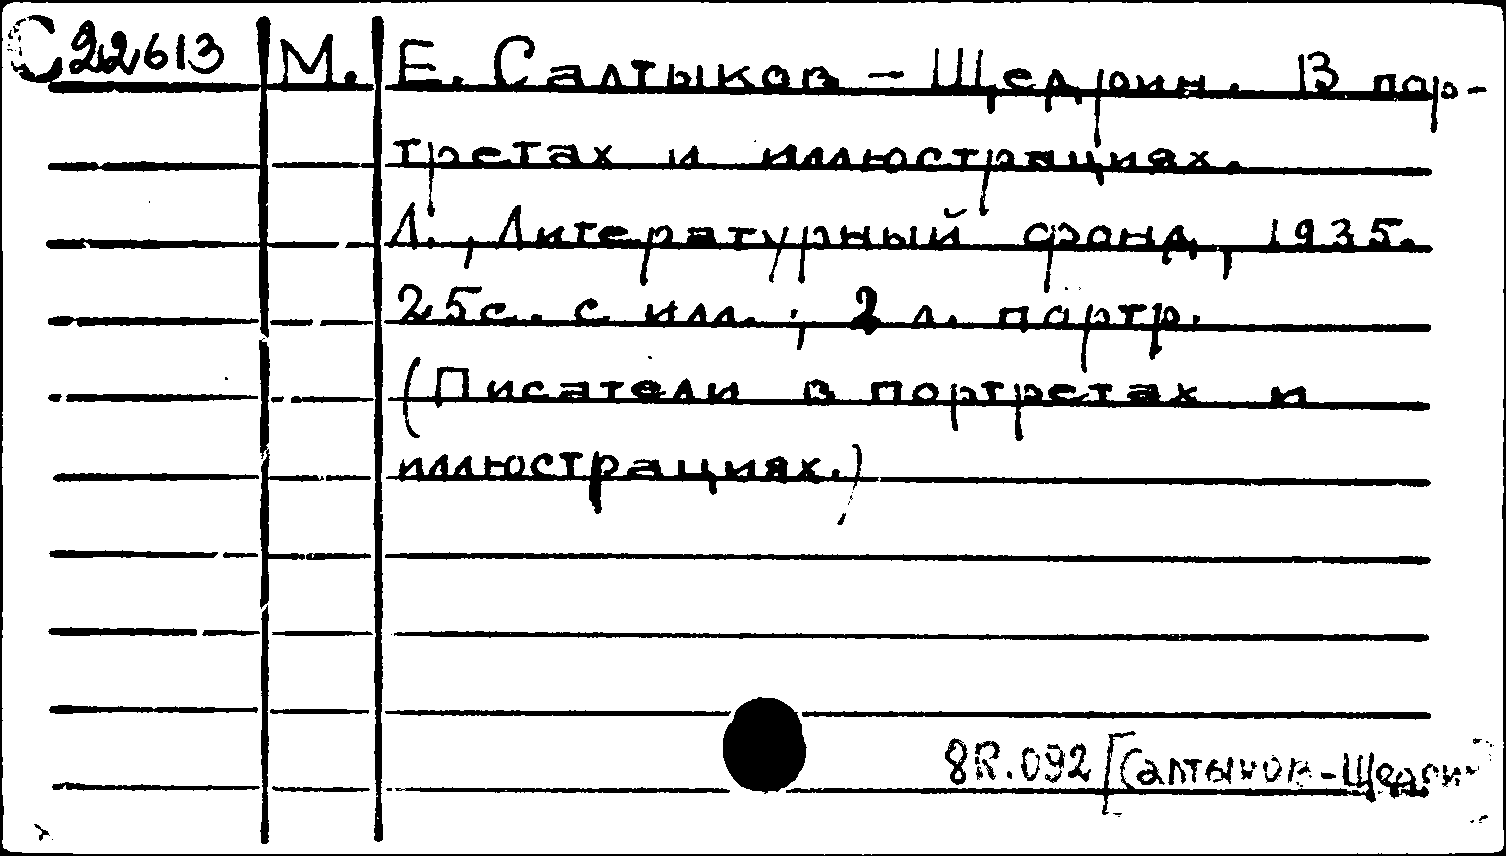 С22613 М. Е. Салтыков-Щедрин. В пор-
третах и иллюстрациях.
Л., Литературный фонд, 1935.
25с. с илл.; 2 л. портр.
(Писатели в портретах и
иллюстрациях.)
8R.092 [Салтыков-Щедрин]